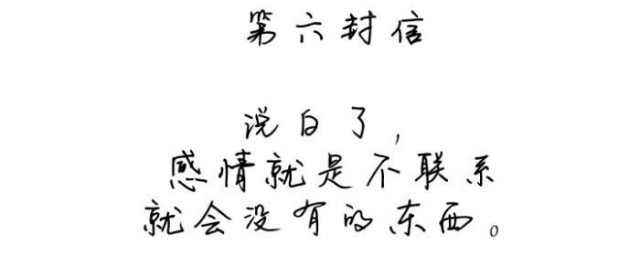 第六封信
说白了,
感情就是不联系
就会没有的东西。